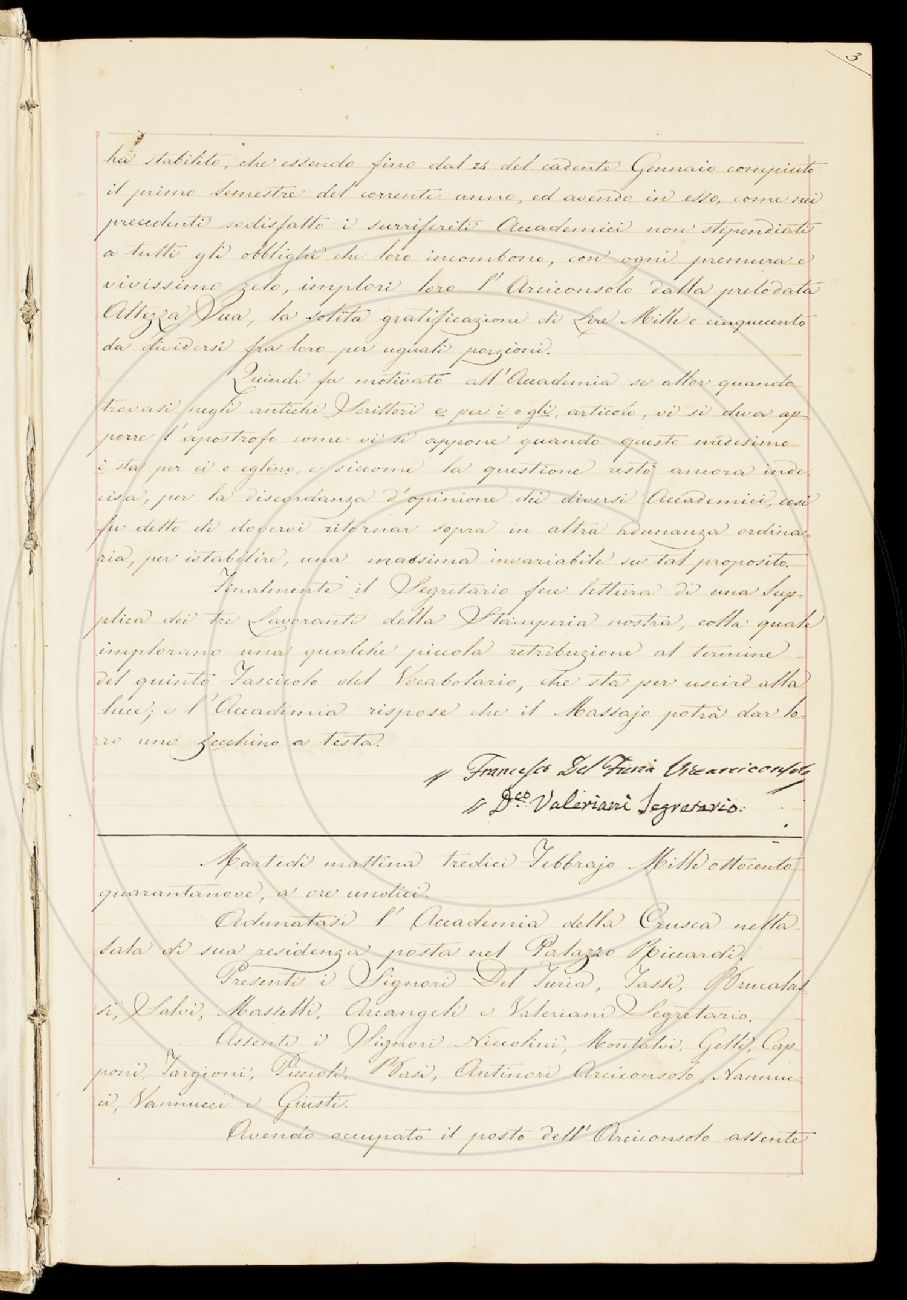 3
ha stabilito, che essendo fino dal 24 del cadente Gennaio compiuto
il primo Semestre del corrente anno, ed avendo in esso, come nei
precedenti sodisfatto i surriferiti Accademici non stipendiati
a tutti gli obblighi che loro incombono, con ogni premura e
vivissimo zelo, implori loro l'Arciconsolo dalla prelodata
Altezza Sua, la solita gratificazione di Lire Mille e cinquecento
da dividersi fra loro per uguali porzioni.
Quindi fu motivato all'Accademia se allor quando
trovasi negli antichi Scrittori e per i o gli, articolo, vi si deva ap-
porre l'apostrofo come vi si appone quando questo medesimo
e sta per ei o eglino, e siccome la questione restò ancora inde-
cisa, per la discordanza d'opinione dei diversi Accademici, così
fu detto di doverci ritornar sopra in altra adunanza ordina-
ria, per istabilire, una massima invariabile su tal proposito.
Finalmente il Segretario fece lettura di una Sup-
plica dei tre Lavoranti della Stamperia nostra, colla quale
implorano una qualche piccola retribuzione al termine
del quinto Fascicolo del Vocabolario, che sta per uscire alla
luce; e l'Accademia rispose che il Massajo potrà dar lo-
ro uno zecchino a testa.
" Francesco Del Furia Vicearciconsolo
" Dco Valeriani Segretario.
Martedì mattina tredici Febbrajo Mille ottocento
quarantanove, a ore undici.
Adunatasi l'Accademia della Crusca nella
sala di sua residenza posta nel Palazzo Riccardi.
Presenti i Signori Del Furia, Tassi, Brucalas-
si, Salvi, Masselli, Arcangeli e Valeriani Segretario.
Assenti i Signori Niccolini, Montalvi, Gelli, Cap-
poni, Targioni, Piccioli, Basi, Antinori Arciconsolo, Nannuc-
ci, Vannucci e Giusti.
Avendo occupato il posto dell'Arciconsolo assente